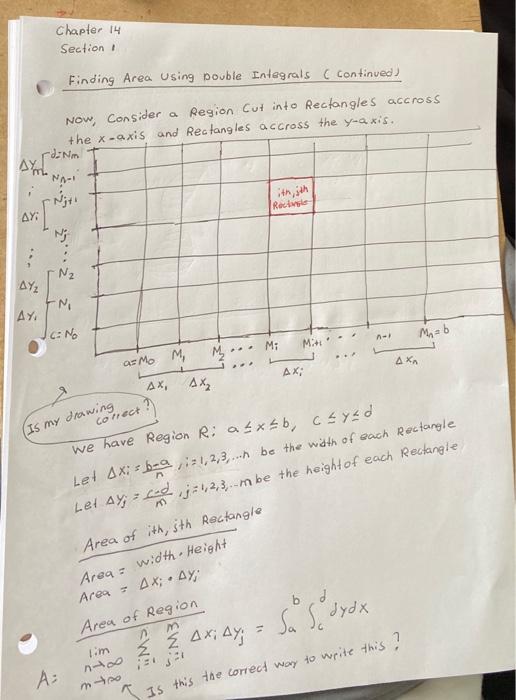 Chapter 14
Section 1
Finding Area Using Double Integrals (continued)
Now, Consider a Region Cut into Rectangles accross
the x-axis and Rectangles accross the y-axis.
d=Nm
ΔYm
Nn-1
Nj+1
ΔYi
Nj
N2
ΔY2
N1
ΔY1
C=N0
ith, jth
Rectangle
a=M0 M1 M2 ... Mi Mi+1 ... n-1 Mn=b
ΔX1 ΔX2 ΔXi ΔXn
Is my drawing
correct?
We have Region R: a≤x≤b, c≤y≤d
Let ΔXi = b-a/n, i=1,2,3,...n be the width of each Rectangle
Let ΔYj = c-d/m, j=1,2,3,...m be the height of each Rectangle
Area of ith, jth Rectangle
Area = width · Height
Area = ΔXi · ΔYj
Area of Region
A= lim n→∞ m→∞ ∑ i=1 n ∑ j=1 m ΔXi ΔYj = ∫a b ∫c d dydx
Is this the correct way to write this?